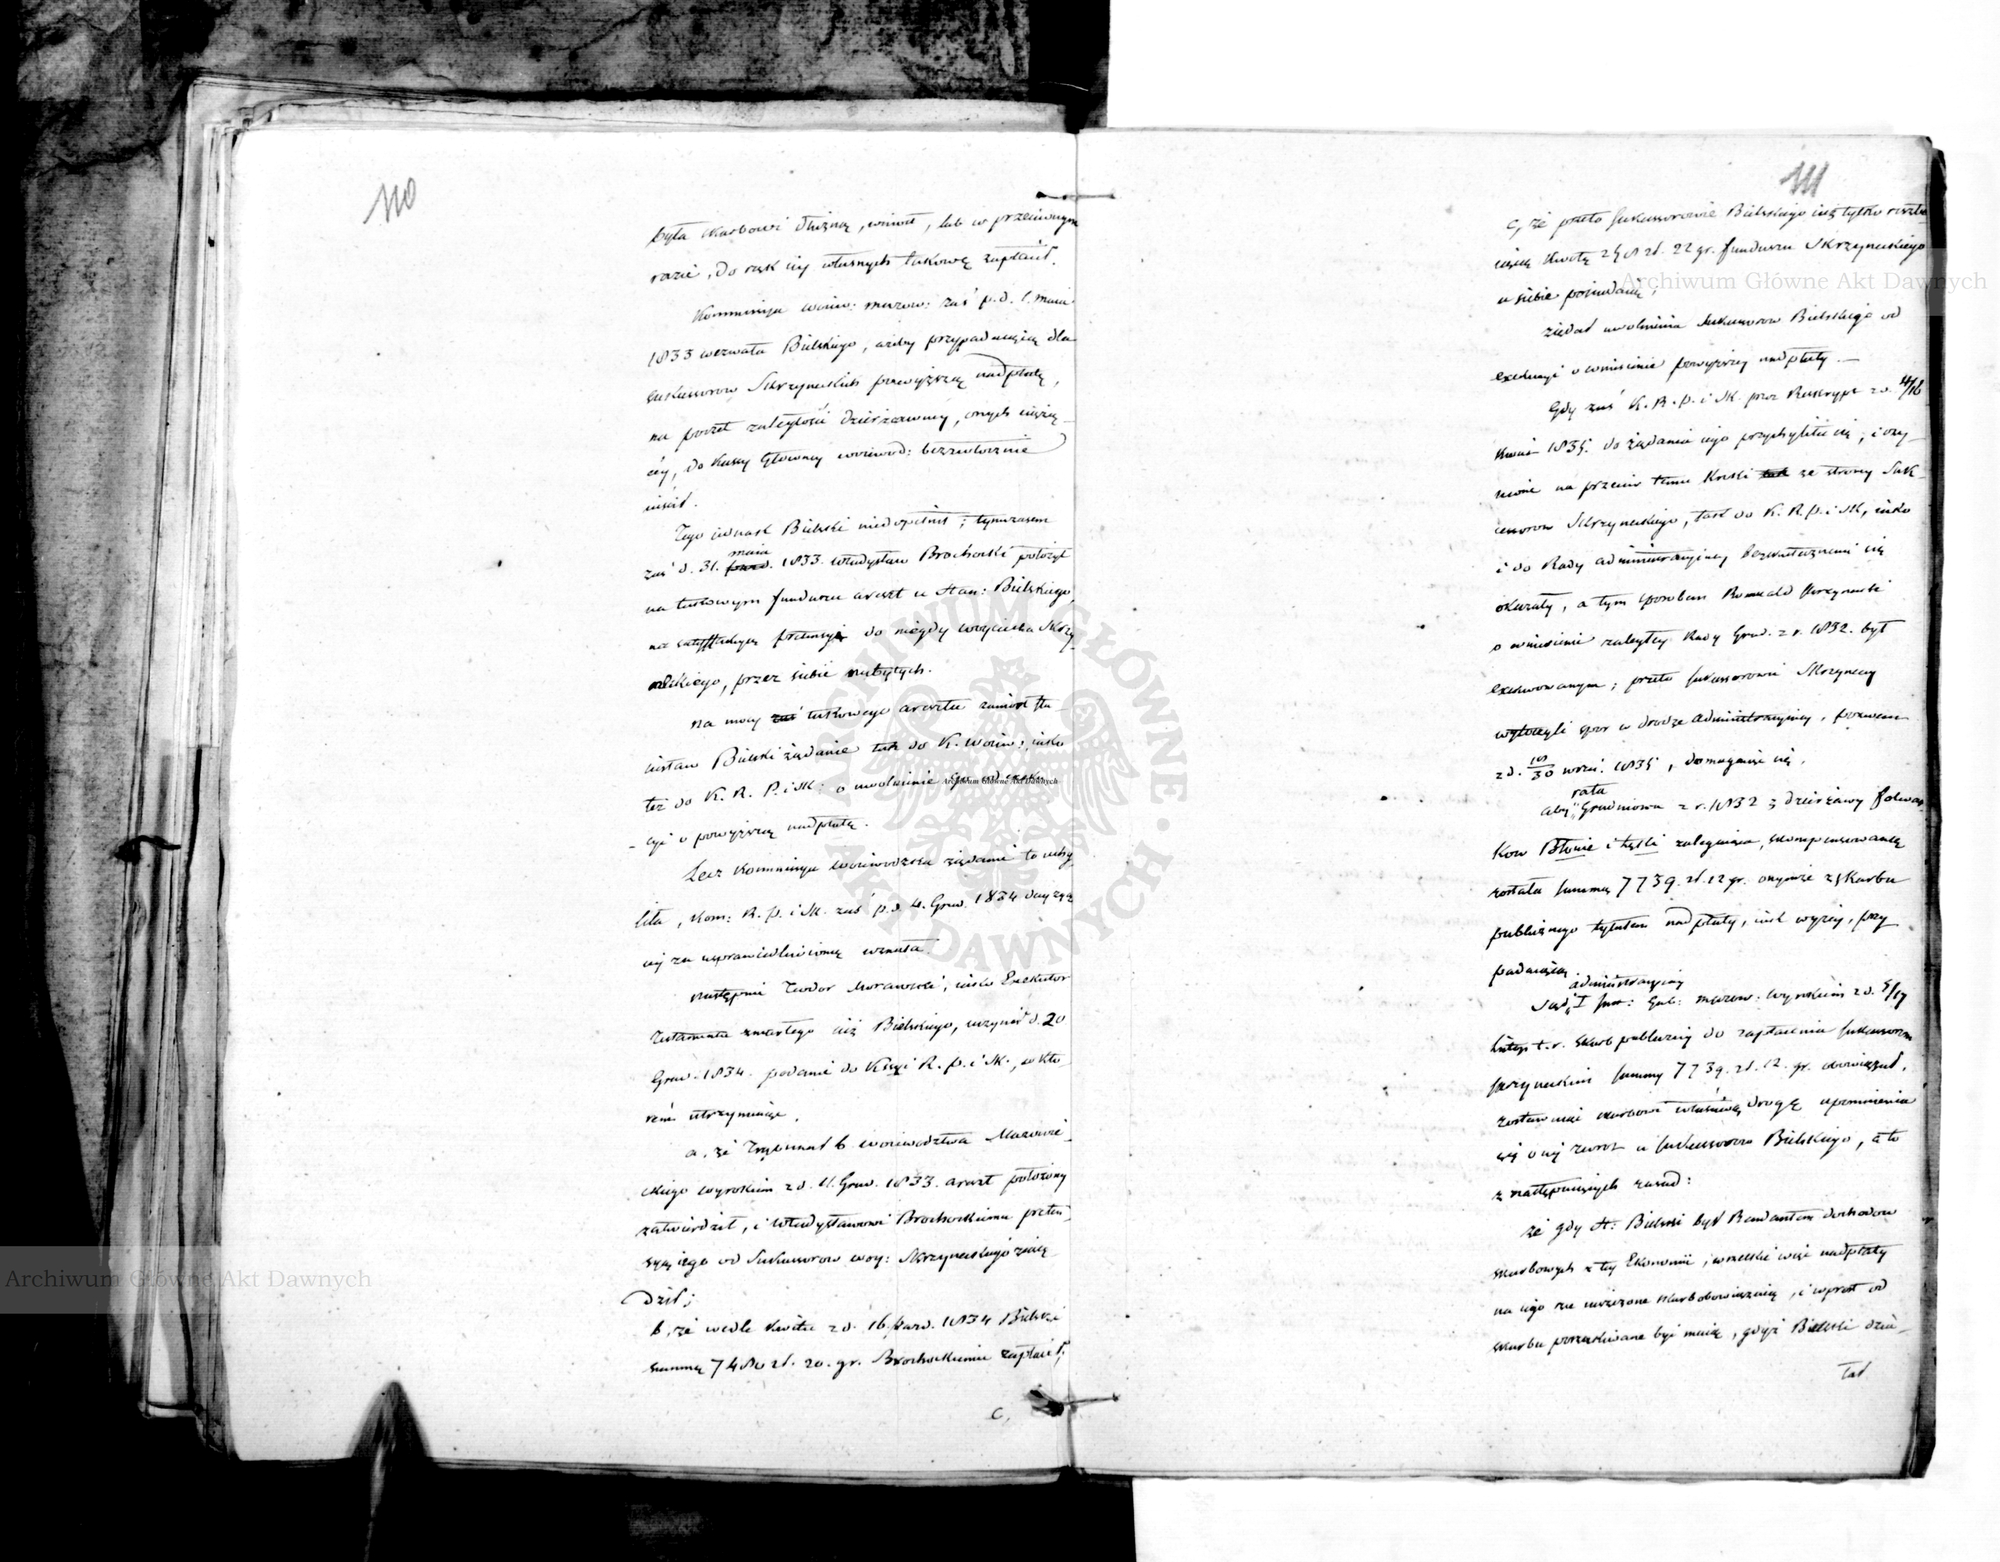 110
była skarbowi dłużną, wniósł, lub w przeciwnym
razie, do rąk iey własnych takową zapłacił.
Kommissya woiew: mazow: zaś p. d. 1. maia
1833 wezwała Bielskiego, ażeby przypadaiącą dla
sukcessorow Skrzyneckich powyższą nadpłatę,
na poczet zaległości dzierżawney, onych ciążą-
cey, do Kassy Główney woiewod: bezzwłocznie
uiścił.
Tego iednak Bielski niedopełnił; tymczasem
zaś d. 31. maia 1833. Władysław Brochocki położył
na takowym funduszu areszt u Stan: Bielskiego,
na satysfakcyą pretensyi do niegdy Woyciecha Skrzy-
neckiego, przez siebie nabytych.
Na mocy zaś takowego aresztu zaniósł Sta-
nisław Bielski żądanie tak do K. Woiew:, iako
też do K. R. P. i Sk. o uwolnienie go od exeku-
cyi o powyższą nadpłatę.
Lecz Kommissya Woiewodzka żądanie to uchy-
liła, Kom: R. p. i Sk. zaś p. d. 4. Grud. 1834 decyzyą
iey za usprawiedliwioną uznała.
Następnie Teodor Morawski, iako Exekutor
Testamentu zmarłego iuż Bielskiego, uczynił d. 20
Grud. 1834. podanie do Kssyi R. p. i Sk., w któ-
rem utrzymuiąc,
a, że Trybunał b. woiewództwa Mazowie-
ckiego wyrokiem z d. 11. Grud. 1833. areszt położony
zatwierdził, i Władysławowi Brochockiemu preten-
syą iego od Sukcessorow woy: Skrzyneckiego zasą-
dził;
b, że wedle kwitu z d. 16. paźd. 1834 Bielski
summę 7480 zł. 20. gr. Brochockiemu zapłacił;
c,
111
c, że przeto sukcessorowie Bielskiego iuż tylko resztu-
iącą kwotę 258 zł. 22 gr. funduszu Skrzyneckiego
u siebie posiadaią;
żądał uwolnienia Sukcessorow Bielskiego od
exekucyi o wniesienie powyższey nadpłaty. —
Gdy zaś K. R. p. i Sk. przez Reskrypt z d. 4/16
Kwiet. 1835. do żądania iego przychyliła się, i czy-
nione na przeciw temu kroki ze strony Suk-
cessorow Skrzyneckiego, tak do K. R. p. i Sk, iako
i do Rady administracyiney bezskutecznemi się
okazały, a tym sposobem Romuald Skrzynecki
o wniesienie zaległey Raty Grud. z r. 1832. był
exekwowanym; przeto sukcessorowie Skrzyneccy
wytoczyli spor w drodze administracyiney, pozwem
z d. 18/30 wrześ. 1835, domagaiąc się,
aby rata Grudniowa z r. 1832 z dzierżawy folwar-
kow Błonie i Łęśki zalegaiąca, skompensowaną
została summą 7739. zł. 12 gr. onymże z skarbu
publicznego tytułem nadpłaty, iak wyżey, przy
padaiącą.
Sąd administracyiny I Inst: Gub: mazow: wyrokiem z d. 5/17
Lutego t. r. skarb publiczny do zapłacenia sukcessorom
Skrzyneckim summy 7739. zł. 12. gr. obowiązał,
zostawuiąc skarbowi właściwą drogę upomnienia
się o iey zwrot u sukcessorow Bielskiego, a to
z następuiących zasad:
że gdy St: Bielski był Rendantem dochodow
skarbowych z tey Ekonomii, wszelkie więc nadpłaty
na iego ręce uiszczone skarb obowiązuią, i wprost od
skarbu poszukiwane być maią, gdyż Bielski dzia-
łał